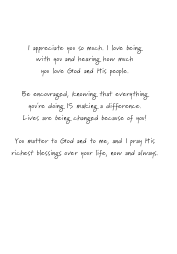 I appreciate you so much. I love being
with you and hearing how much
you love God and His people.
Be encouraged, knowing that everything
you're doing IS making a difference.
Lives are being changed because of you!
You matter to God and to me, and I pray His
richest blessings over your life, now and always.